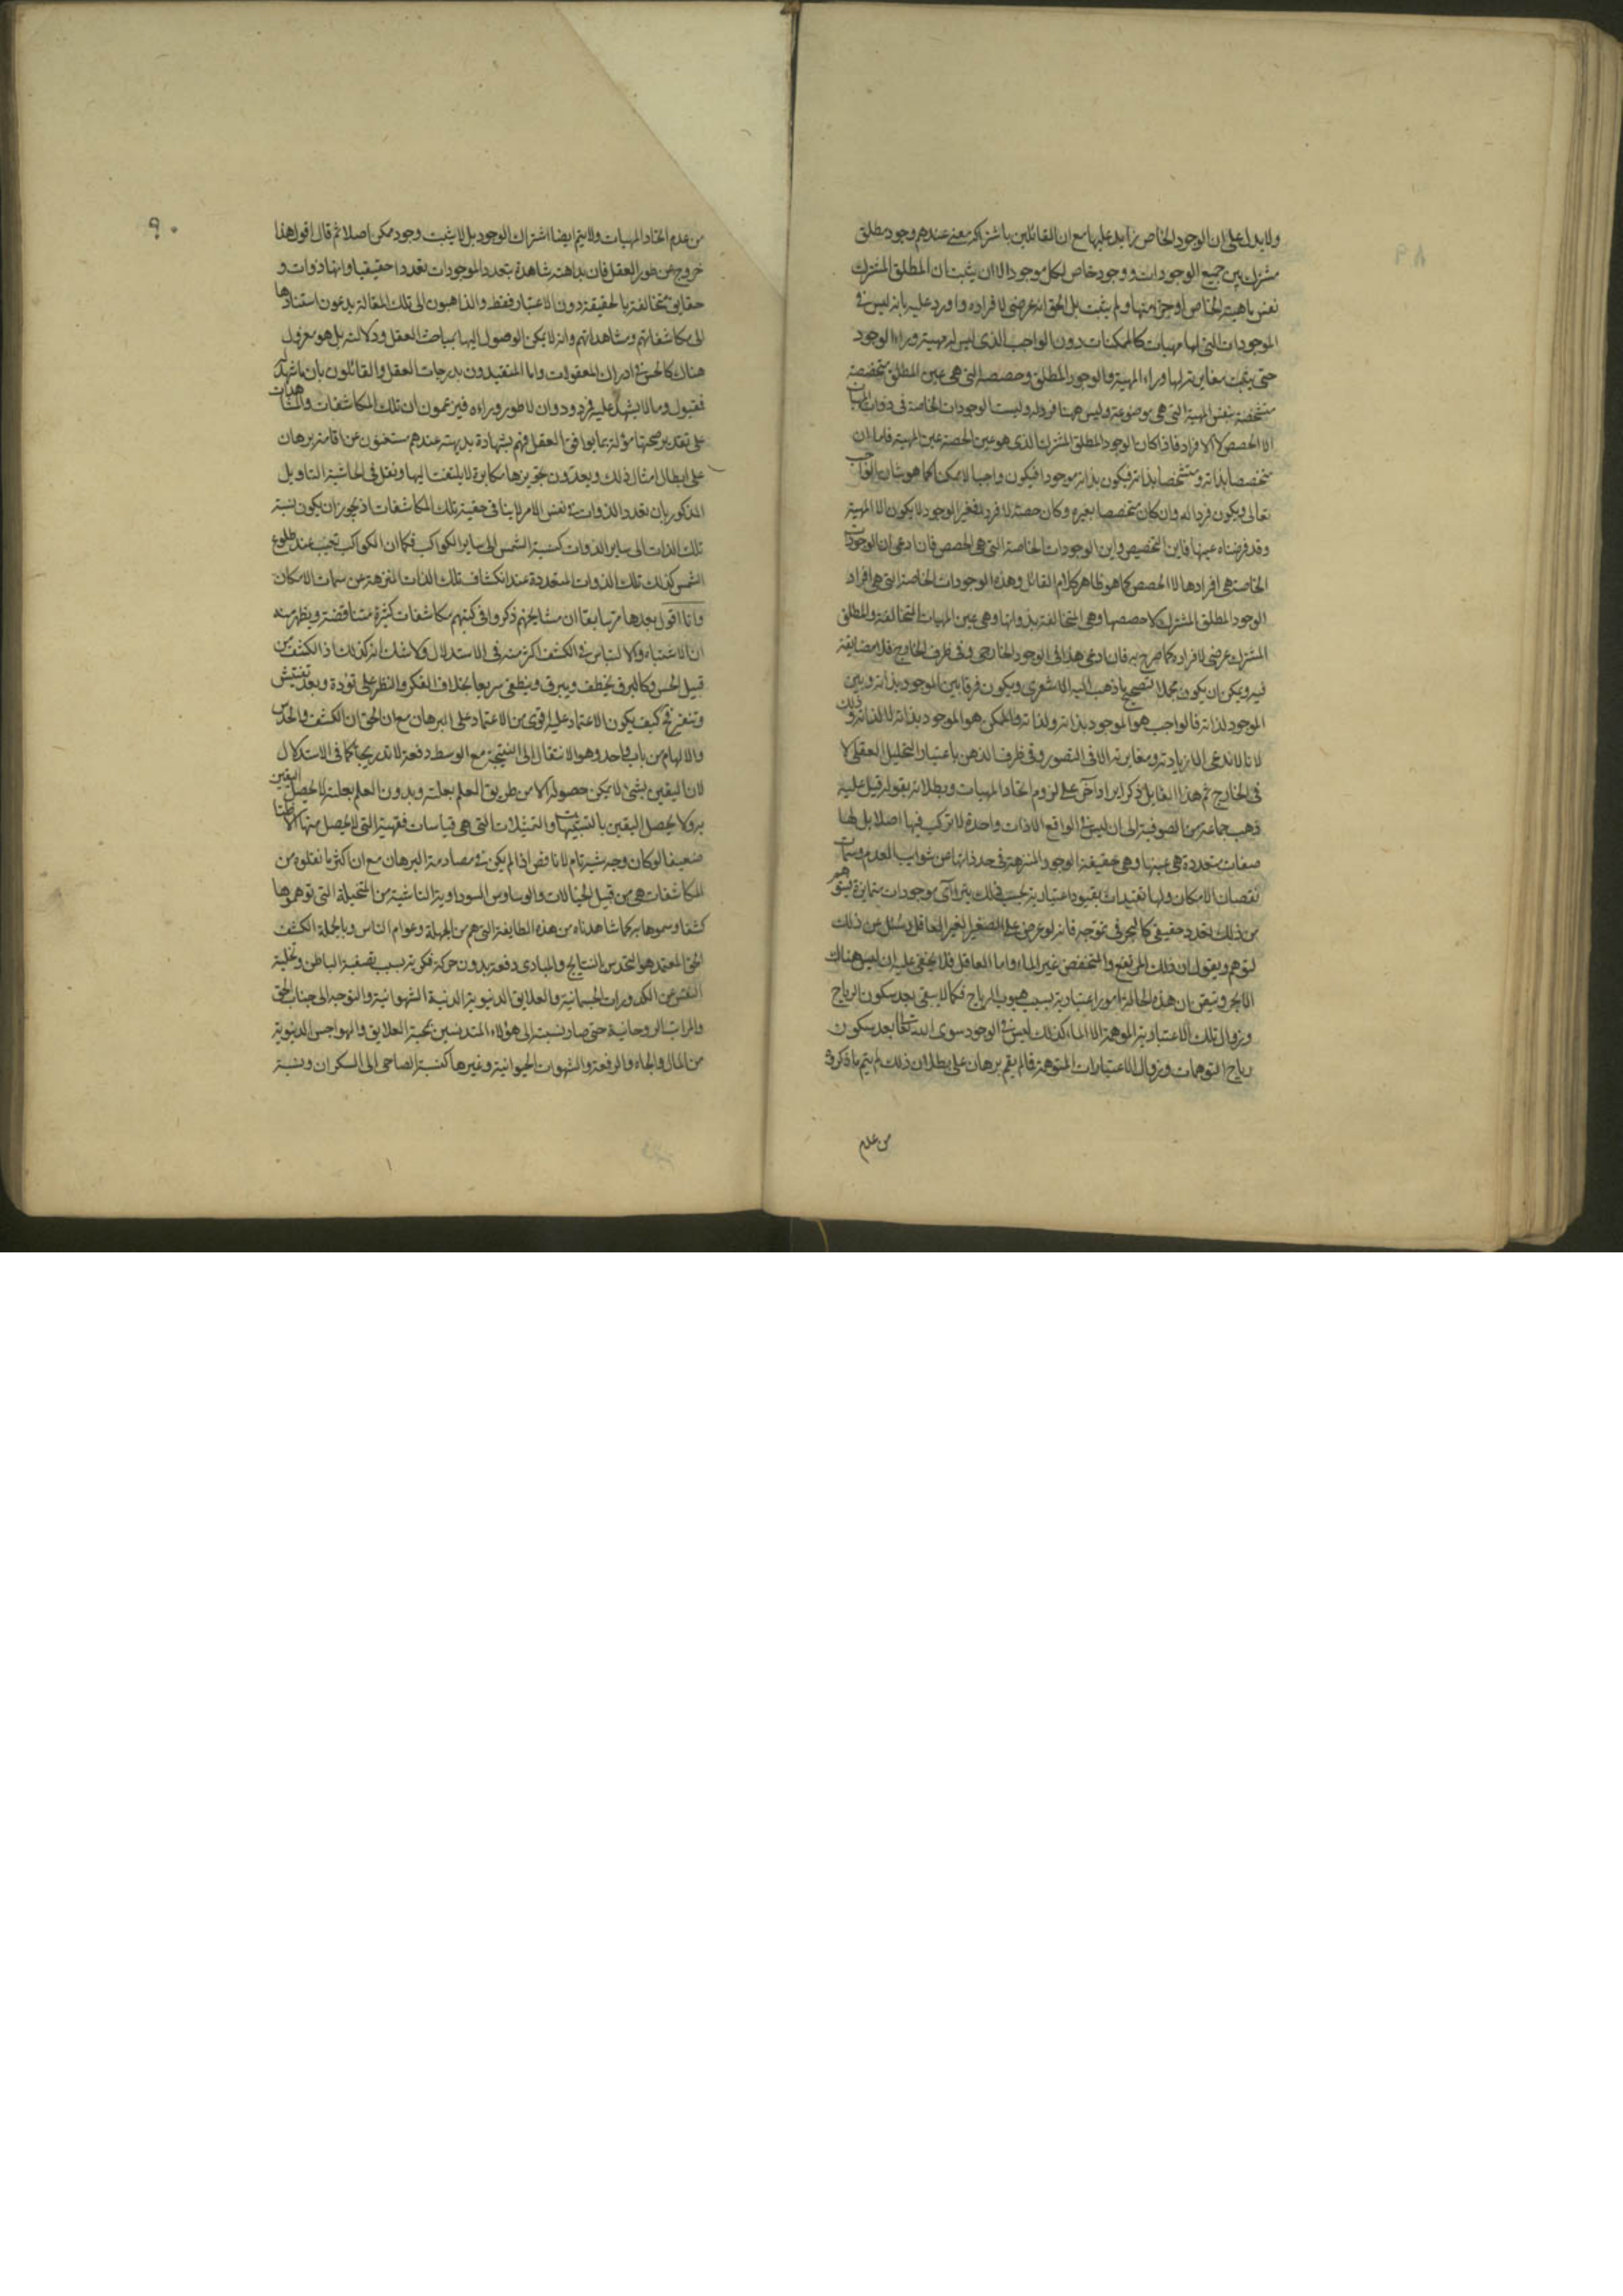 ٨٩
ولا يدل على ان الوجود الخاص زايد عليها مع ان القائلين باشتراكه معنى عندهم وجود مطلق
مشترك بين جميع الوجودات ووجود خاص لكل موجود الا ان يثبت ان المطلق المشترك
نفس ماهية الخاص او جزء منها ولم يثبت بل الحق انه عرضى لافراده واورد عليه بانه ليس فى
الموجودات التى لها مهيات كالممكنات دون الواجب الذى ليس له مهية وراء الوجود
حتى يثبت مغايرته لها وراء المهية والوجود المطلق وحصصه التى هى عين المطلق متخصصة
متخصصة بنفس المهية التى هى موضوعة وليس ههنا فرد له وليست الوجودات الخاصة فى ذوات المهيات
الا الحصص لا الافراد فاذا كان الوجود المطلق المشترك الذى هو عين الحصة عين المهية فاما ان
متخصصا بذاته ومتشخصا بذاته فيكون بذاته موجودا فيكون واجبا لا ممكنا كما هو شان الواجب
تعالى ويكون فردا له وان كان متخصصا بغيره وكان حصة لا فردا فغير الوجود لا يكون الا المهية
وقد فرضناه عينها فاين التخصيص واين الوجودات الخاصة التى هى الحصص فان ادعى ان الوجودات
الخاصة هى افرادها لا الحصص كما هو ظاهر كلام القائل وهذه الوجودات الخاصة التى هى افراد
الوجود المطلق المشترك لا حصصها وهى المتخالفة بذواتها وهى عين المهيات المتخالفة والمطلق
المشترك عرضى لافراده كما صرح به فان ادعى هذا فى الوجود الخارجى وفى ظرف الخارج فلا مضايقة
فيه ويمكن ان يكون محملا لتصحيح ما ذهب اليه الاشعرى ويكون فرقا بين الموجود بذاته وبين
الموجود لذاته فالواجب هو الموجود بذاته ولذاته والممكن هو الموجود بذاته لا لذاته وذلك
لانا لا ندعى الا زيادته ومغايرته الا فى التصور وفى ظرف الذهن باعتبار التحليل العقلى لا
فى الخارج ثم هذا القايل ذكر ايرادا آخر على لزوم اتحاد المهيات وبطلانه بقوله قيل عليه
ذهب جماعة من الصوفية الى ان ليس فى الواقع الا ذات واحدة لا تركب فيها اصلا بل لها
صفات متعددة هى عينها وهى حقيقة الوجود المنزهة فى حد ذاتها من شوايب العدم وسمات
نقصان الامكان ولها تقيدات بقيود اعتبارية بحسب ذلك يتراآى موجودات متمايزة فيتوهم
من ذلك تعدد حقيقى كالبحر فى تموجه فانه لو عرض على الصغير الغير العاقل وسئل عن ذلك
ليتوهم ويقول ان ذلك المرتفع والمنخفض غير الماء واما العاقل فلا يخفى عليه ان ليس هناك
الا البحر ويتيقن ان هذه الحالة امور اعتبارية بسبب هبوب الرياح فكما لا يبقى بعد سكون الرياح
وزوال تلك الاعتبارية الموهمة الا الماء كذلك ليس فى الوجود سوى الله تعالى بعد سكون
رياح التوهمات وزوال الاعتبارات المتوهمة فما لم يقم برهان على بطلان ذلك لم يتم ما ذكروه
من عدم
٩٠
من عدم اتحاد المهيات ولا يتم ايضا اشتراك الوجود بل لا يثبت وجود ممكن اصلا ثم قال اقول هذا
خروج عن طور العقل فان بداهته شاهدة بتعدد الموجودات تعددا حقيقيا وانها ذوات و
حقايق متخالفة بالحقيقة دون الاعتبار فقط والذاهبون الى تلك المقالة يدعون استنادها
الى مكاشفاتهم ومشاهداتهم وانه لا يمكن الوصول اليها بمباحث العقل ودلالته بل هو معزول
هناك كالحس فى ادراك المعقولات واما المتقيدون بدرجات العقل والقائلون بان ما شهد له
فمقبول وما لا يشهد عليه فمردود وان لا طور وراءه فيزعمون ان تلك المكاشفات والمشاهدات
على تقدير صحتها مؤولة بما يوافق العقل فهم بشهادة بديهته عندهم مستغنون عن اقامة برهان
على ابطال امثال ذلك ويعدون تجويزها مكابرة لا يلتفت اليها ونقل فى الحاشية التاويل
المذكور بان تعدد الذوات فى نفس الامر لا ينافى حقية تلك المكاشفات اذ يجوز ان يكون نسبة
تلك الذات الى ساير الذوات كنسبة الشمس الى ساير الكواكب فكما ان الكواكب تحتجب عند طلوع
الشمس كذلك تلك الذوات المتعددة عند انكشاف تلك الذات المنزهة عن سمات الامكان
وانا اقول بعدها مر سابقا ان مشايخهم ذكروا فى كتبهم مكاشفات كثيرة متناقضة ويظهر منه
ان الاشتباه والالتباس فى الكشف اكثر منه فى الاستدلال ولا شك انه كذلك اذ الكشف من
قبيل الحس وكالبرق يخطف ويبرق وينطفى سريعا بخلاف الفكر والنظر على تؤدة وبعد تفتيش
وتنقير فح كيف يكون الاعتماد عليه اقوى من الاعتماد على البرهان مع ان الحق ان الكشف والحدس
والالهام من باب واحد وهو الانتقال الى النتيجة مع الوسط دفعة لا تدريجا كما فى الاستدلال
لان اليقين بشئ لا يمكن حصوله الا من طريق العلم بعلته وبدون العلم بعلته لا يحصل اليقين
به ولا يحصل اليقين بالتشبيهات والتمثيلات التى هى قياسات فقهية التى لا يحصل منها الا ظنا
ضعيفا لو كان وجه شبه تام لا ناقص اذا لم يكن فى مصادمة البرهان مع ان اكثر ما نقلوه من
المكاشفات هى من قبيل الخيالات والوساوس السوداوية الناشية من المتخيلة التى توهموها
كشفا وسموها به كما شاهدناه من هذه الطايفة التى هم من الجهلة وعوام الناس وبالجملة الكشف
الحق المعتمد هو التحدس بالنتايج والمبادى دفعة بدون حركة فكرية بسبب تصفية الباطن وتخلية
النفس عن الكدورات الجسمانية والعلايق الدنيوية الدنية الشهوانية والتوجه الى جناب الحق
والمراتب الروحانية حتى صار نسبته الى هؤلاء المتدنسين بمحبة العلايق والهواجس الدنيوية
من المال والجاه والرفعة والشهوات الحيوانية وغيرها كنسبة الصاحى الى السكران ونسبة